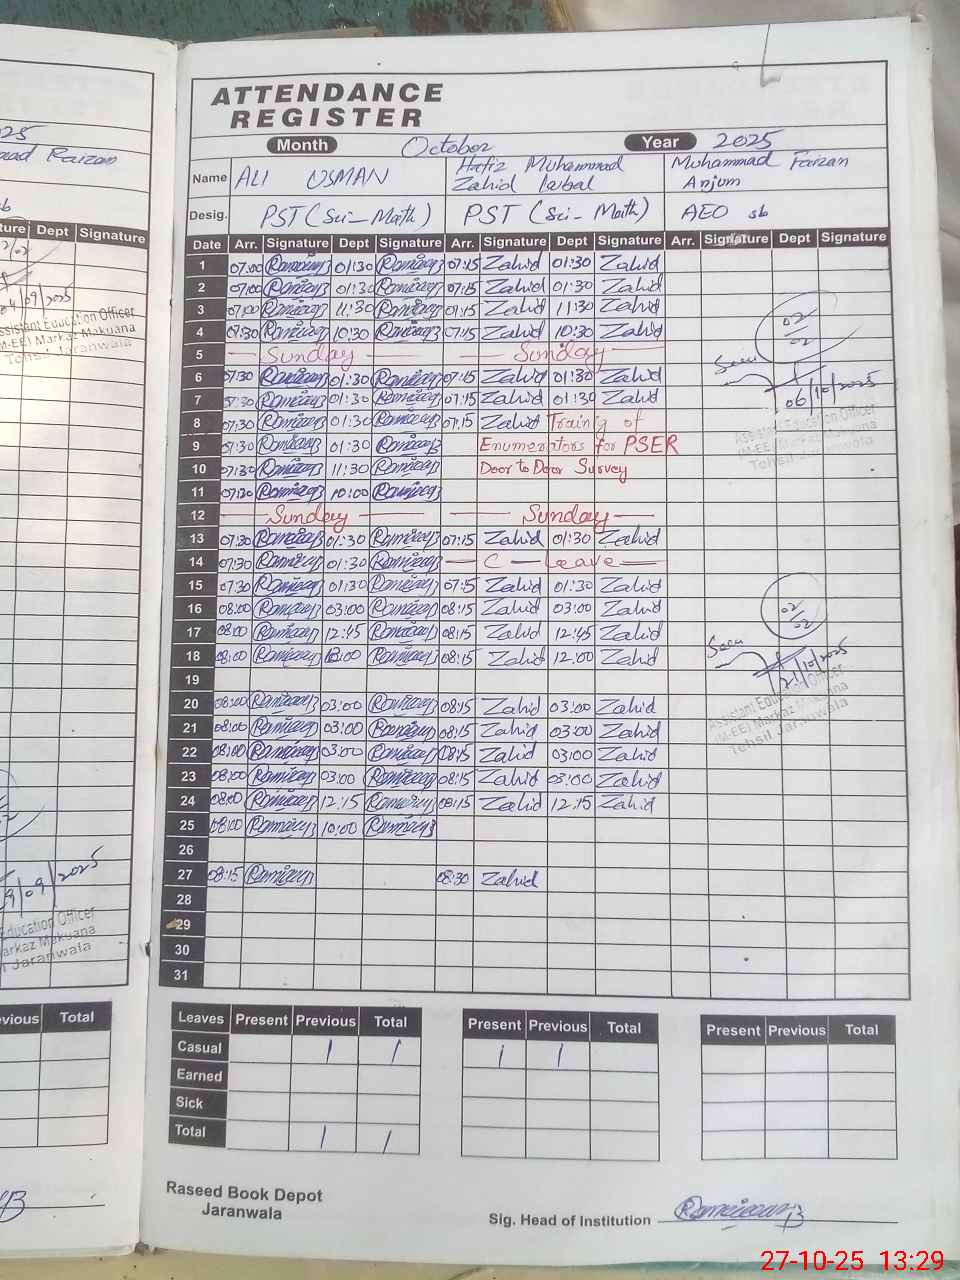 ATTENDANCE
REGISTER
Month October Year 2025
Name ALI USMAN Hafiz Muhammad Zahid Iqbal Muhammad Faizan Anjum
Desig. PST (Sci-Math) PST (Sci-Math) AEO sb
Date Arr. Signature Dept Signature Arr. Signature Dept Signature Arr. Signature Dept Signature
1 07:00 01:30 07:15 Zahid 01:30 Zahid
2 07:00 01:30 07:15 Zahid 01:30 Zahid
3 07:00 11:30 07:15 Zahid 11:30 Zahid
4 07:30 10:30 07:15 Zahid 10:30 Zahid
5 Sunday Sunday
6 07:30 01:30 07:15 Zahid 01:30 Zahid
7 07:30 01:30 07:15 Zahid 01:30 Zahid
8 07:30 01:30 07:15 Zahid Training of
9 07:30 01:30 Enumerators for PSER
10 07:30 11:30 Door to Door Survey
11 07:30 10:00
12 Sunday Sunday
13 07:30 01:30 07:15 Zahid 01:30 Zahid
14 07:30 01:30 C Leave
15 07:30 01:30 07:15 Zahid 01:30 Zahid
16 08:00 03:00 08:15 Zahid 03:00 Zahid
17 08:00 12:45 08:15 Zahid 12:45 Zahid
18 08:00 08:15 Zahid 12:00 Zahid
19
20 08:00 03:00 08:15 Zahid 03:00 Zahid
21 08:00 03:00 08:15 Zahid 03:00 Zahid
22 08:00 03:00 08:15 Zahid 03:00 Zahid
23 08:00 03:00 08:15 Zahid 03:00 Zahid
24 08:00 12:15 08:15 Zahid 12:15 Zahid
25 08:00 10:00
26
27 08:15 08:30 Zahid
28
29
30
31
02/02
Seen
06/10/2025
Assistant Education Officer
(M-EE) Markaz Makuana
Tehsil Jaranwala
02/02
Seen
21/10/2025
Assistant Education Officer
(M-EE) Markaz Makuana
Tehsil Jaranwala
Leaves Present Previous Total Present Previous Total Present Previous Total
Casual 1 1 1 1
Earned
Sick
Total 1 1
Raseed Book Depot
Jaranwala
Sig. Head of Institution
Dept Signature
09/2025
Assistant Education Officer
(M-EE) Markaz Makuana
Tehsil Jaranwala
09/2025
Education Officer
Markaz Makuana
Jaranwala
Total
27-10-25 13:29